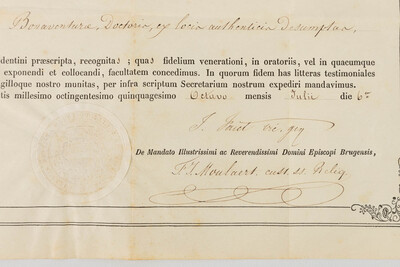 Bonaventura, Doctoris, ex locis authenticis desumptas,
dentini præscripta, recognitas ; quas fidelium venerationi, in oratoriis, vel in quacumque
exponendi et collocandi, facultatem concedimus. In quorum fidem has litteras testimoniales
gilloque nostro munitas, per infra scriptum Secretarium nostrum expediri mandavimus.
tis millesimo octingentesimo quinquagesimo Octavo mensis Julii die 6ᵃ
De Mandato Illustrissimi ac Reverendissimi Domini Episcopi Brugensis,
F. J. Moulaert, cust. ss. Reliq.